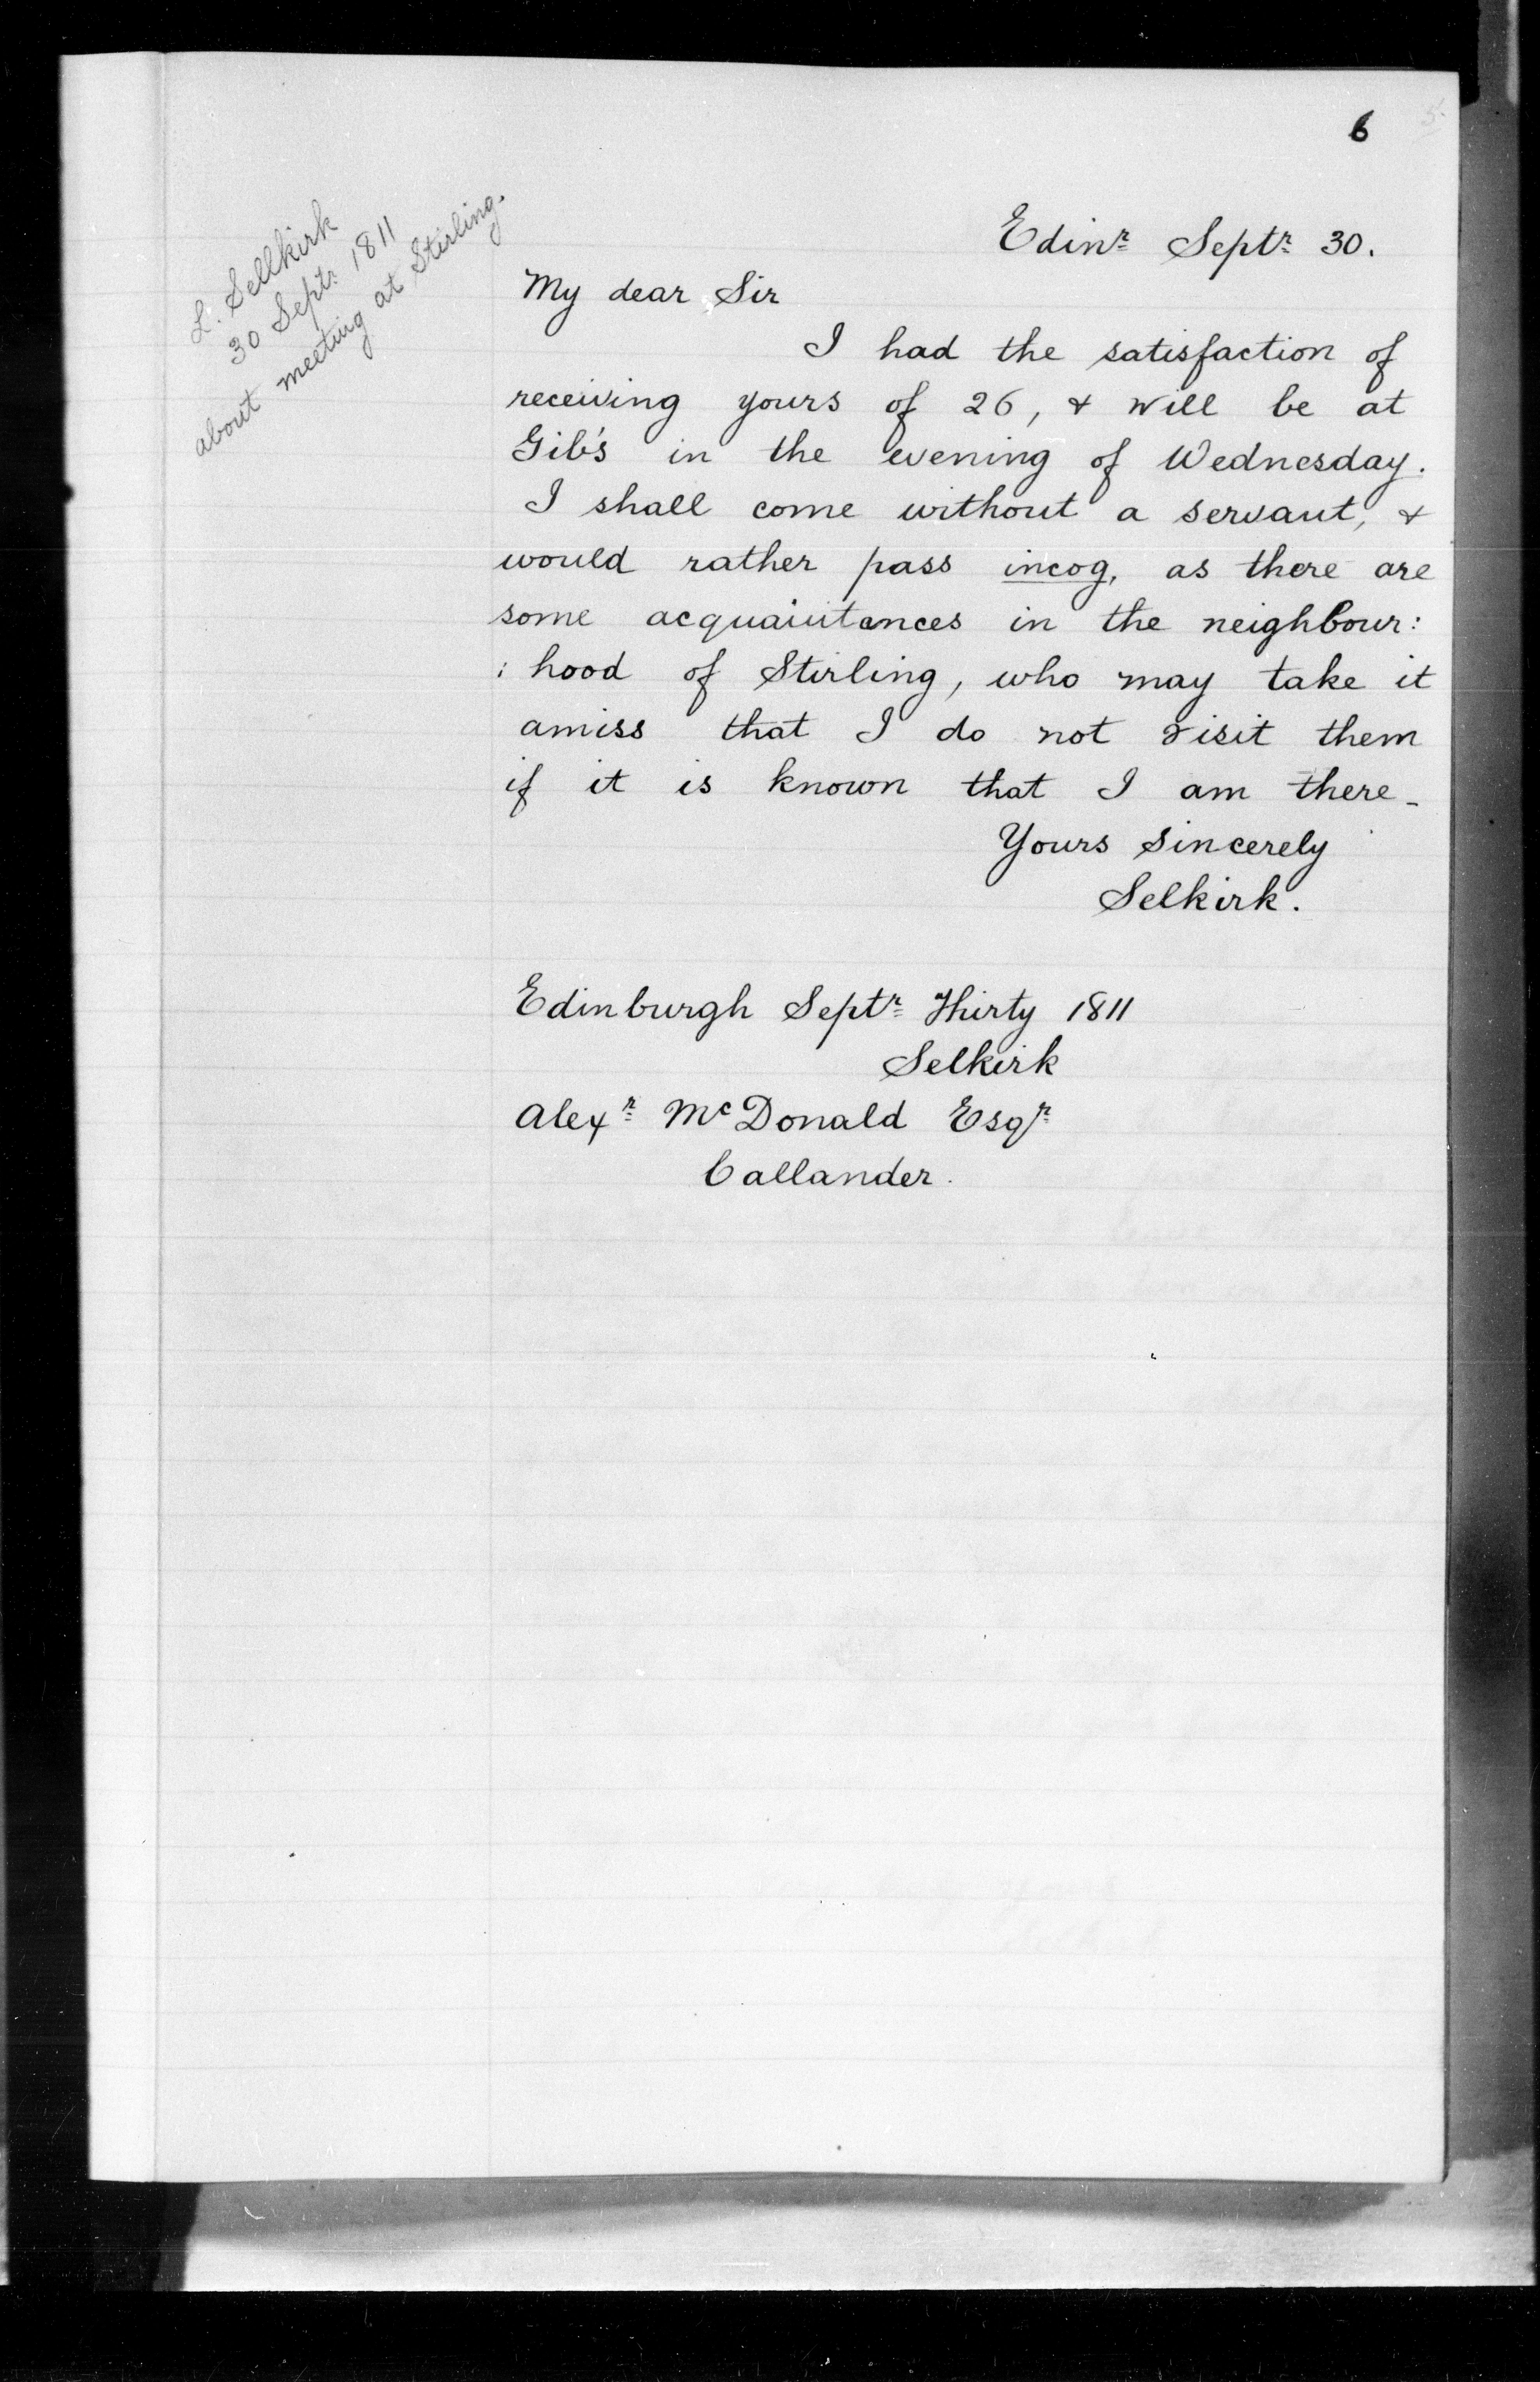 6
L. Sellkirk
30 Septr. 1811
about meeting at Stirling.
Edinr Septr 30.
My dear Sir
I had the satisfaction of
receiving yours of 26, & will be at
Gib's in the evening of Wednesday.
I shall come without a servant, &
would rather pass incog, as there are
some acquaintances in the neighbour:
: hood of Stirling, who may take it
amiss that I do not visit them
if it is known that I am there_
Yours sincerely
Selkirk.
Edinburgh Septr Thirty 1811
Selkirk
Alexr McDonald Esqr
Callander.